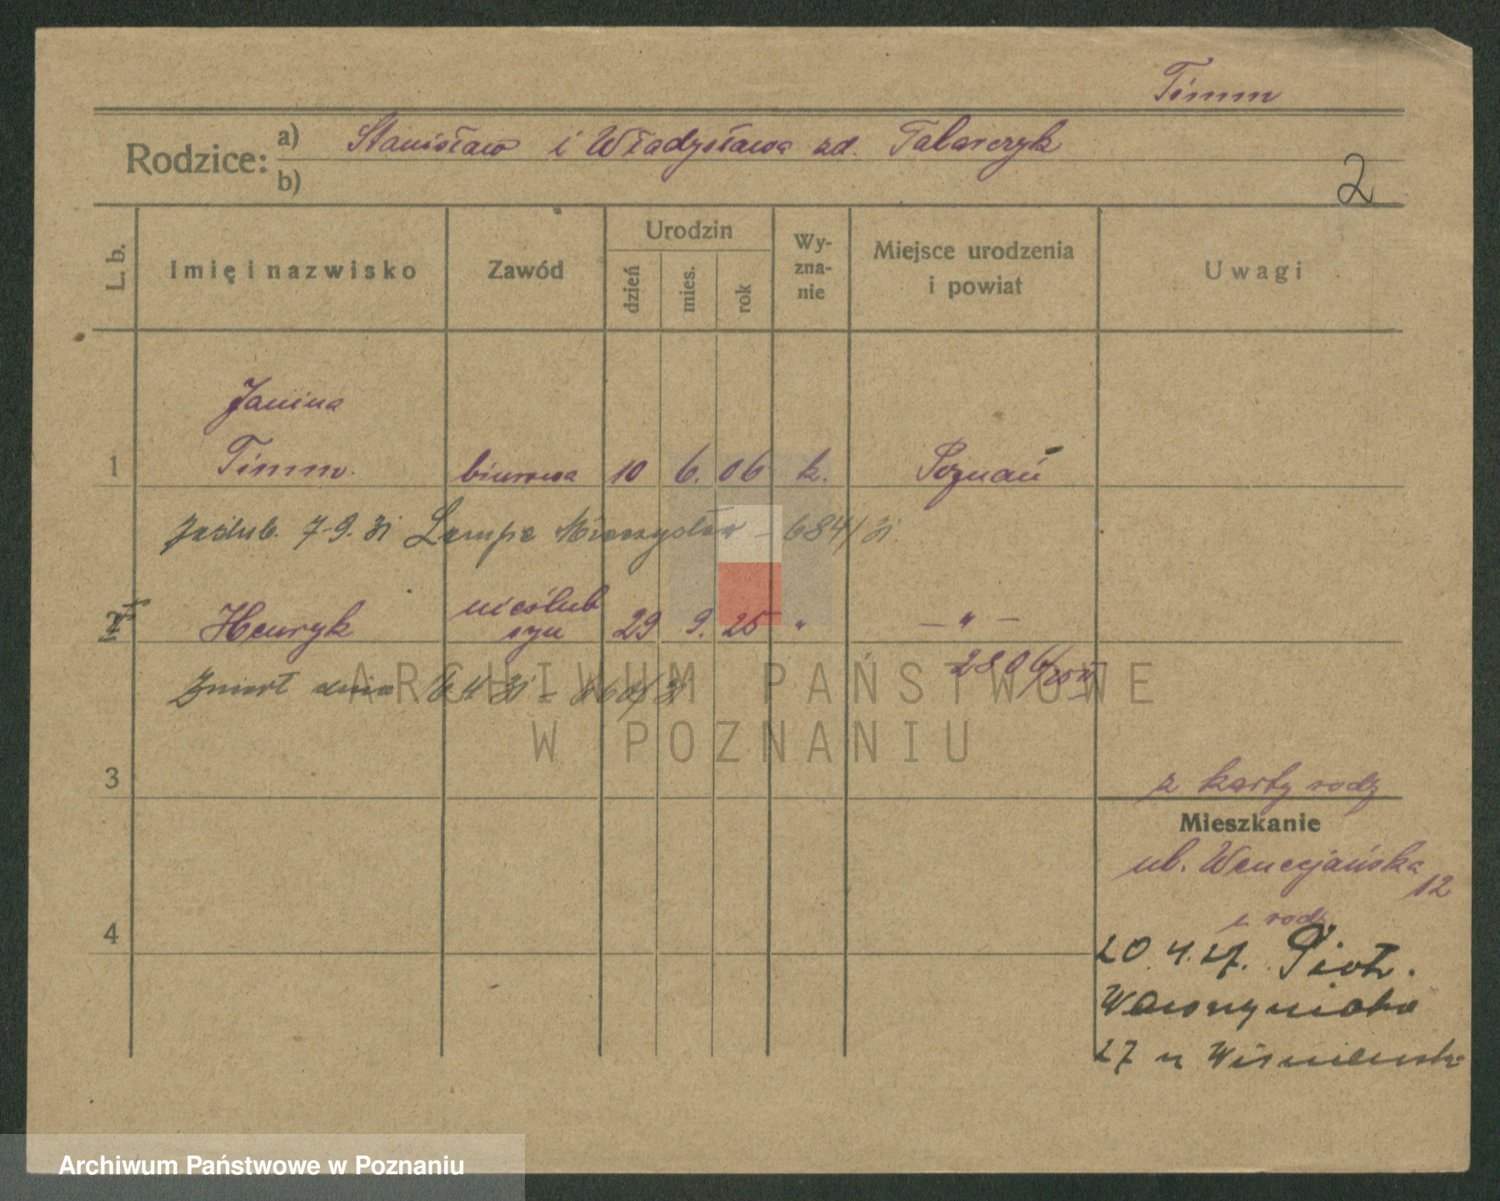 Timm
Rodzice: a) Stanisław i Władysława zd. Tabarczyk
b)
2
L. b.
Imię i nazwisko
Zawód
Urodzin
dzień
mies.
rok
Wy-
zna-
nie
Miejsce urodzenia
i powiat
Uwagi
Janina
1 Timm. biurowa 10 6. 06 k. Poznań
Zaślub. 7.9.31 Lampe Mieczysław - 684/31
nieślub
2 Henryk syn 29 9. 25 " - " -
2806/
Zmarł dnia
ARCHIWUM PAŃSTWOWE
W POZNANIU
3
z karty rodz
Mieszkanie
ul. Wenecjańska
12
z rodz
4
20.4.27. Piotr.
Wawrzyniaka
27 u Wiśniewsk
Archiwum Państwowe w Poznaniu